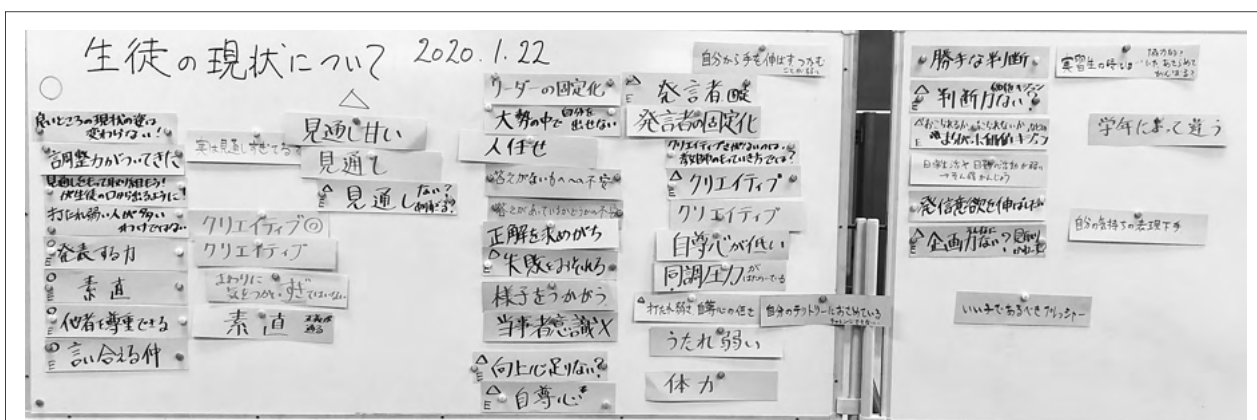 生徒の現状について 2020.1.22
○
良いところの現状の姿は
変わらない!
調整力がついてきた
見通しをもって取り組もう!
が生徒の口から出るように!
打たれ弱い人が多い
わけではない
○
E
発表する力
○
E
素直
○
E
他者を尊重できる
○
E
言い合える仲
実は見通しすぎてる
クリエイティブ◎
クリエイティブ
まわりに
気をつかいすぎてはいない
素直
△
見通し甘い
見通し
△
E
見通しない?
リーダーの固定化
大勢の中で自分を
出せない
人任せ
答えがないものへの不安
答えがあっているかどうかの不安
正解を求めがち
△
E
失敗をおそれる
様子をうかがう
当事者意識X
△
E
向上心足りない?
△
E
自尊心
自分から手を伸ばすつかむ
ことが弱い
△
E
発言者固定
発言者の固定化
クリエイティブさが出ないのは、
教師のもっていき方では?
△
E
クリエイティブ
クリエイティブ
自尊心が低い
同調圧力が
はたらいている
△
E
打たれ弱さ、自尊心の低さ
自分のテリトリーにおさめている
うたれ弱い
体力
勝手な判断
△
E
判断力ない?
日常生活や
発信意欲を伸ばしたい
△
E
企画力ない?
実習生の時は
学年によって違う
自分の気持ちの表現下手
いい子であるべきプレッシャー